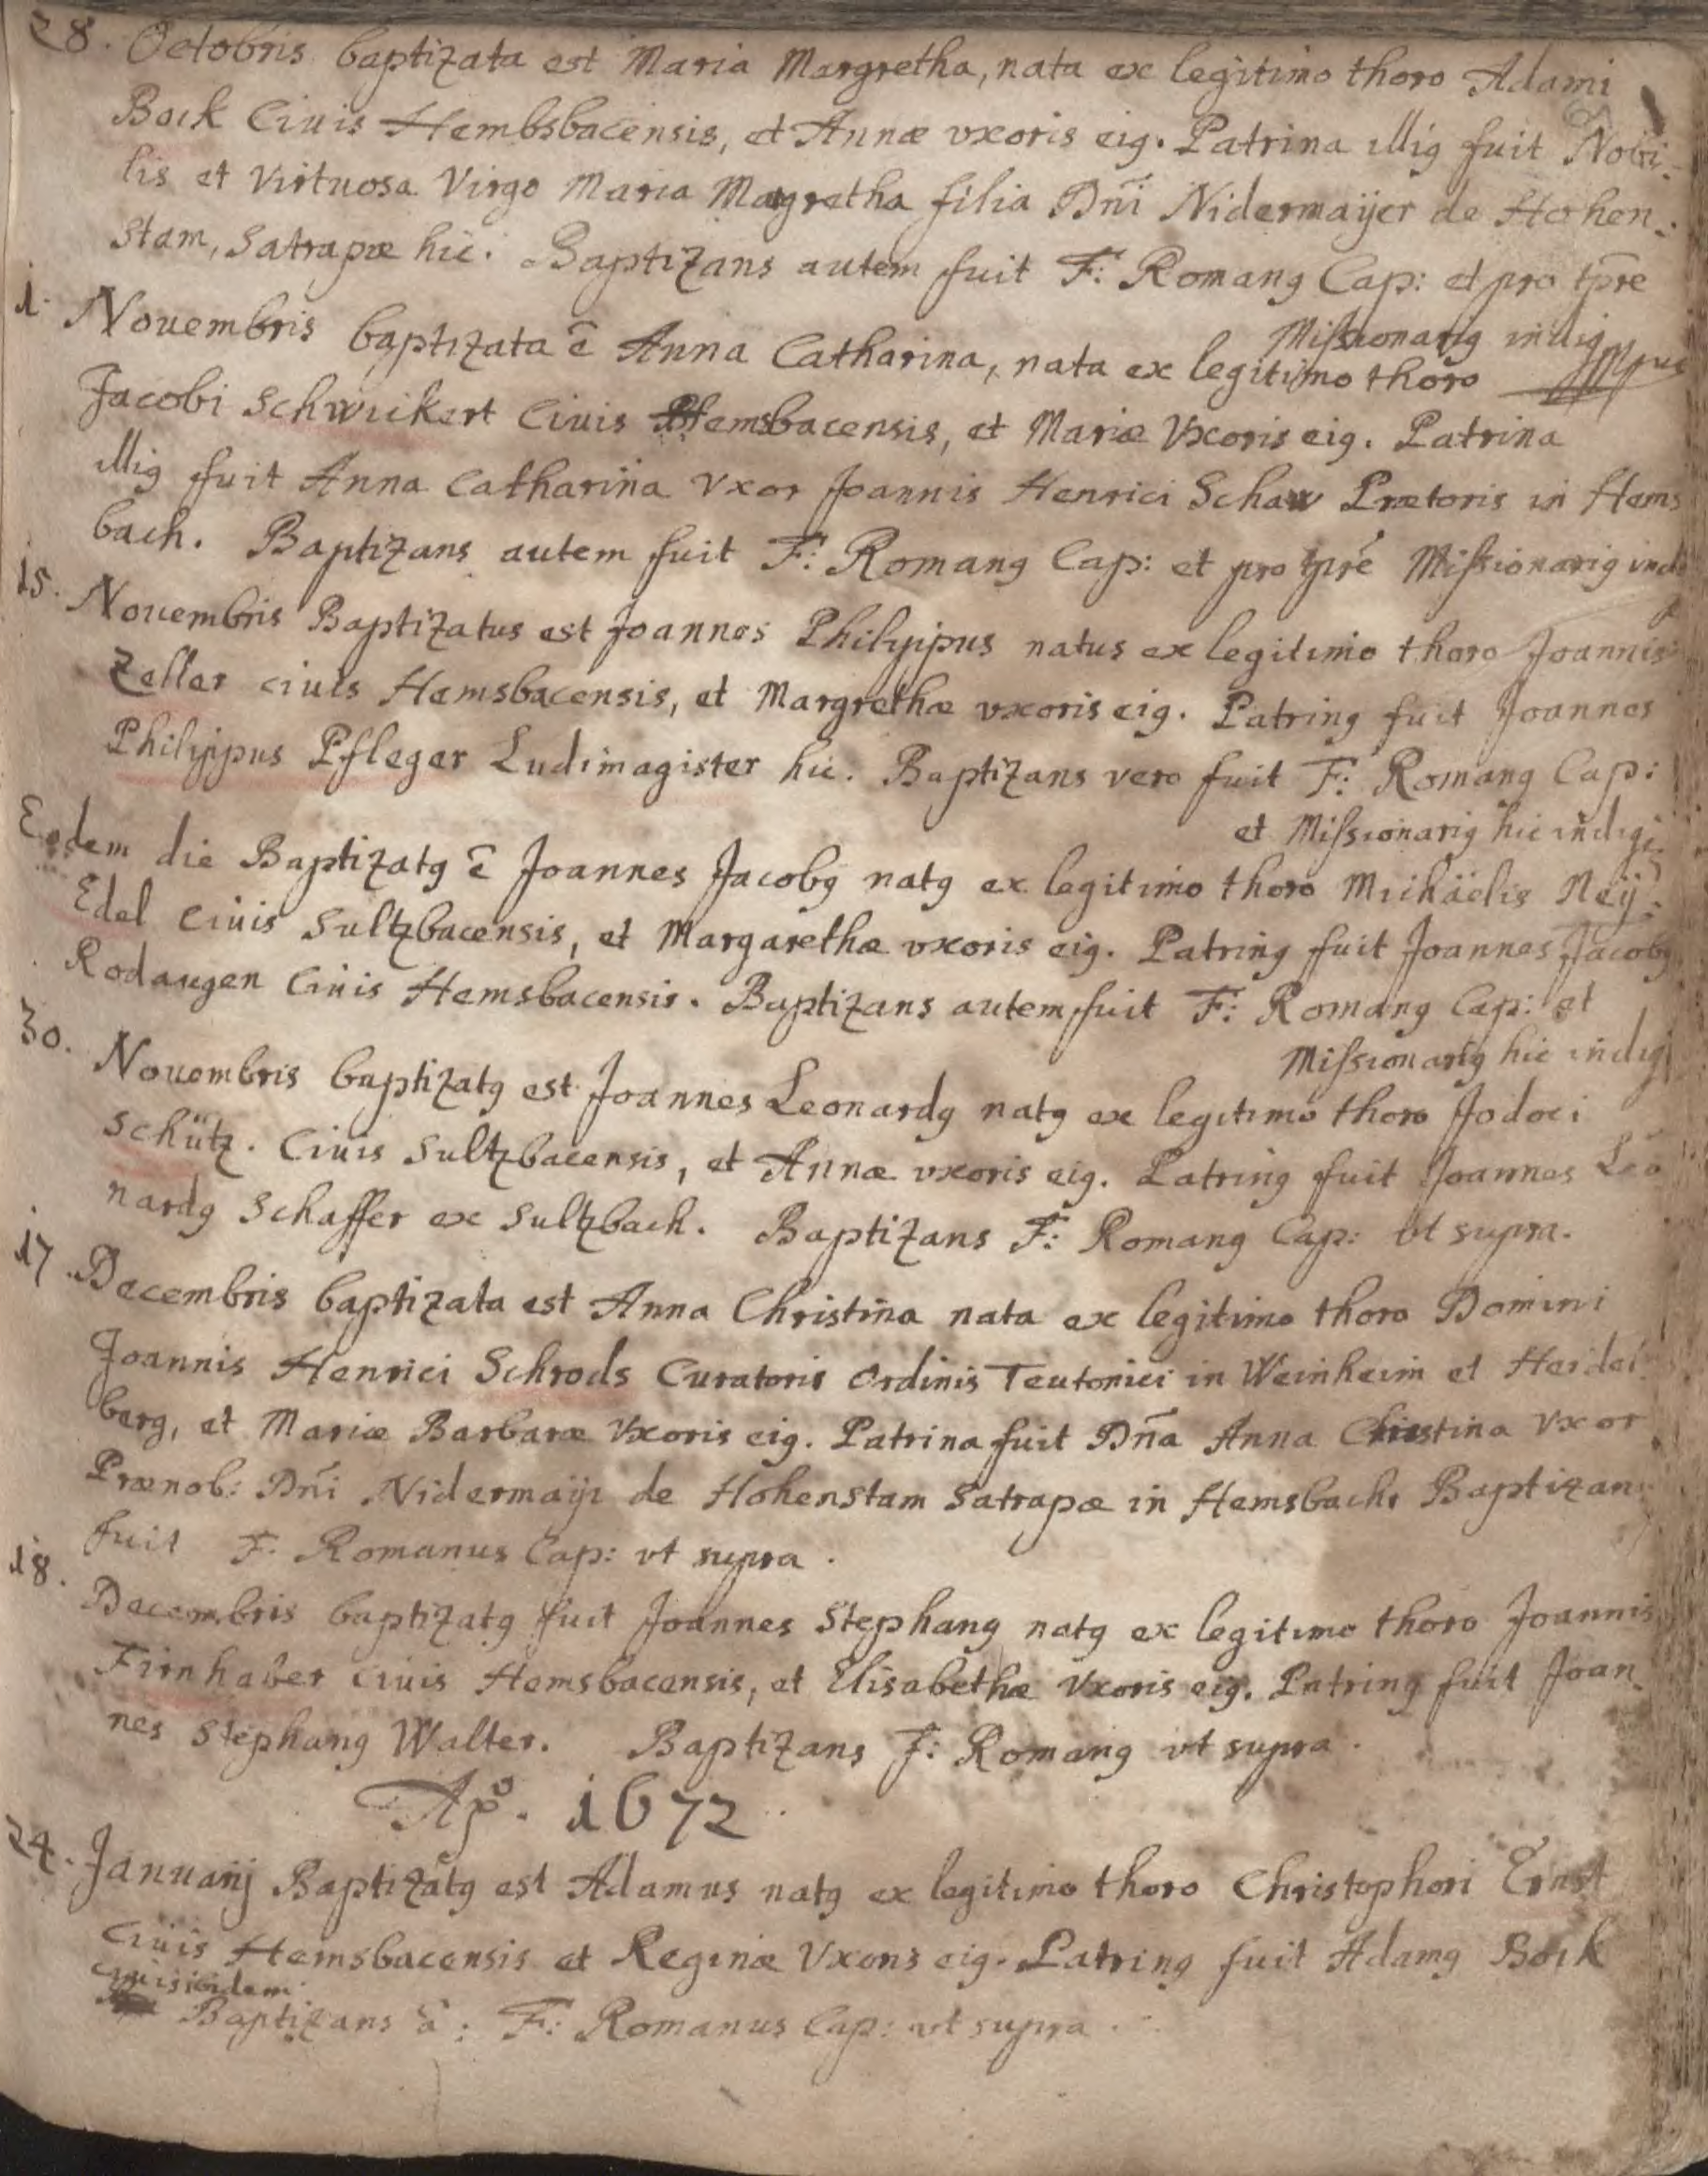 28. Octobris baptizata est Maria Margretha, nata ex legitimo thoro Adami
Bock Ciuis Hembsbacensis, et Annæ vxoris eig. Patrina illig fuit Nobi-
lis et virtuosa Virgo Maria Magretha filia Dñi Nidermaÿer de Hohen-
stam, Satrapæ hic. Baptizans autem fuit F: Romang Cap: et pro tpre
Missionarig indig
1. Nouembris baptizata ẽ Anna Catharina, nata ex legitimo thoro
Jacobi Schwickert Ciuis Hemsbacensis, et Mariæ Vxoris eig. Patrina
illig fuit Anna Catharina vxor Joannis Henrici Schaw Prætoris in Hems
bach. Baptizans autem fuit F: Romang Cap: et pro tpre Missionarig indi
15. Nouembris Baptizatus est Joannes Philippus natus ex legitimo thoro Joannis
Zeller ciuis Hemsbacensis, et Margrethæ vxoris eig. Patring fuit Joannes
Philippus Pfleger Ludimagister hic. Baptizans vero fuit F: Romang Cap:
et Missionarig hic indig:
Eodem die Baptizatg ẽ Joannes Jacobg natg ex legitimo thoro Michäelis Neÿ:
Edel ciuis Sultzbacensis, et Margarethæ vxoris eig. Patring fuit Joannes Jacobg
Rodaugen Ciuis Hemsbacensis. Baptizans autem fuit F: Romang Cap: et
Missionarig hic indig
30. Nouembris baptizatg est Joannes Leonardg natg ex legitimo thoro Jodoci
Schütz. Ciuis Sultzbacensis, et Annæ vxoris eig. Patring fuit Joannes Leo
nardg Schaffer ex Sultzbach. Baptizans F: Romang Cap: vt supra.
17. Decembris baptizata est Anna Christina nata ex legitimo thoro Domini
Joannis Henrici Schrods Curatoris Ordinis Teutonici in Weinheim et Heidel
berg, et Mariæ Barbaræ Vxoris eig. Patrina fuit Dña Anna Christina vxor
Prænob: Dñi Nidermaÿr de Hohenstam Satrapæ in Hemsbach. Baptizans
fuit F. Romanus Cap: vt supra.
18. Decembris baptizatg fuit Joannes Stephang natg ex legitimo thoro Joannis
Firnhaber ciuis Hemsbacensis, et Elisabethæ Vxoris eig. Patring fuit Joan
nes Stephang Walter. Baptizans F: Romang vt supra.
Aõ. 1672
24. Januarij Baptizatg est Adamus natg ex legitimo thoro Christophori Ernst
Ciuis Hemsbacensis et Reginæ Vxoris eig. Patring fuit Adamg Bock
ciuis ibidem
Baptizans ẽ: F: Romanus Cap: vt supra.